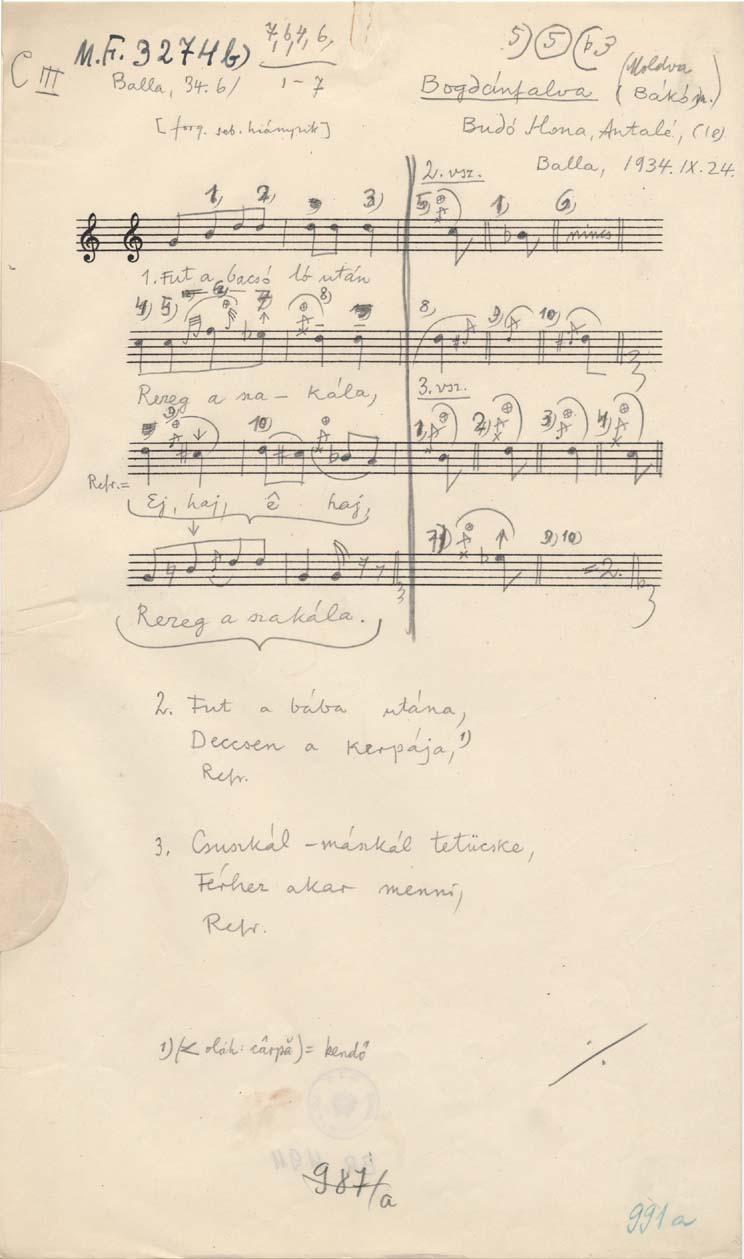 C III
M.F. 3274b) 7, 6, 4, 6,
1-7
Balla, 34. 6/
5) 5 (b3
Bogdánfalva (Moldva
(Bákó m.)
[forg. seb. hiányzik]
Budó Ilona, Antalé, (18)
Balla, 1934. IX. 24.
2. vsz.
1) 2) 3) 5) 1) 6)
nincs
1. Fut a bacsó ló után
4) 5) 7) 8) 8) 9) 10)
Rezeg a sza-kála,
3. vsz.
9) 10) 1) 2) 3) 4)
Refr.=
Ej, haj, ê haj,
7) 9) 10)
=2.
Rezeg a szakála.
2. Fut a bába utána,
Deccsen a kerpája,1)
Refr.
3. Csuszkál-mászkál tetücske,
Férhez akar menni,
Refr.
1) (< oláh: cârpă) = kendő
./.
987/a
991a